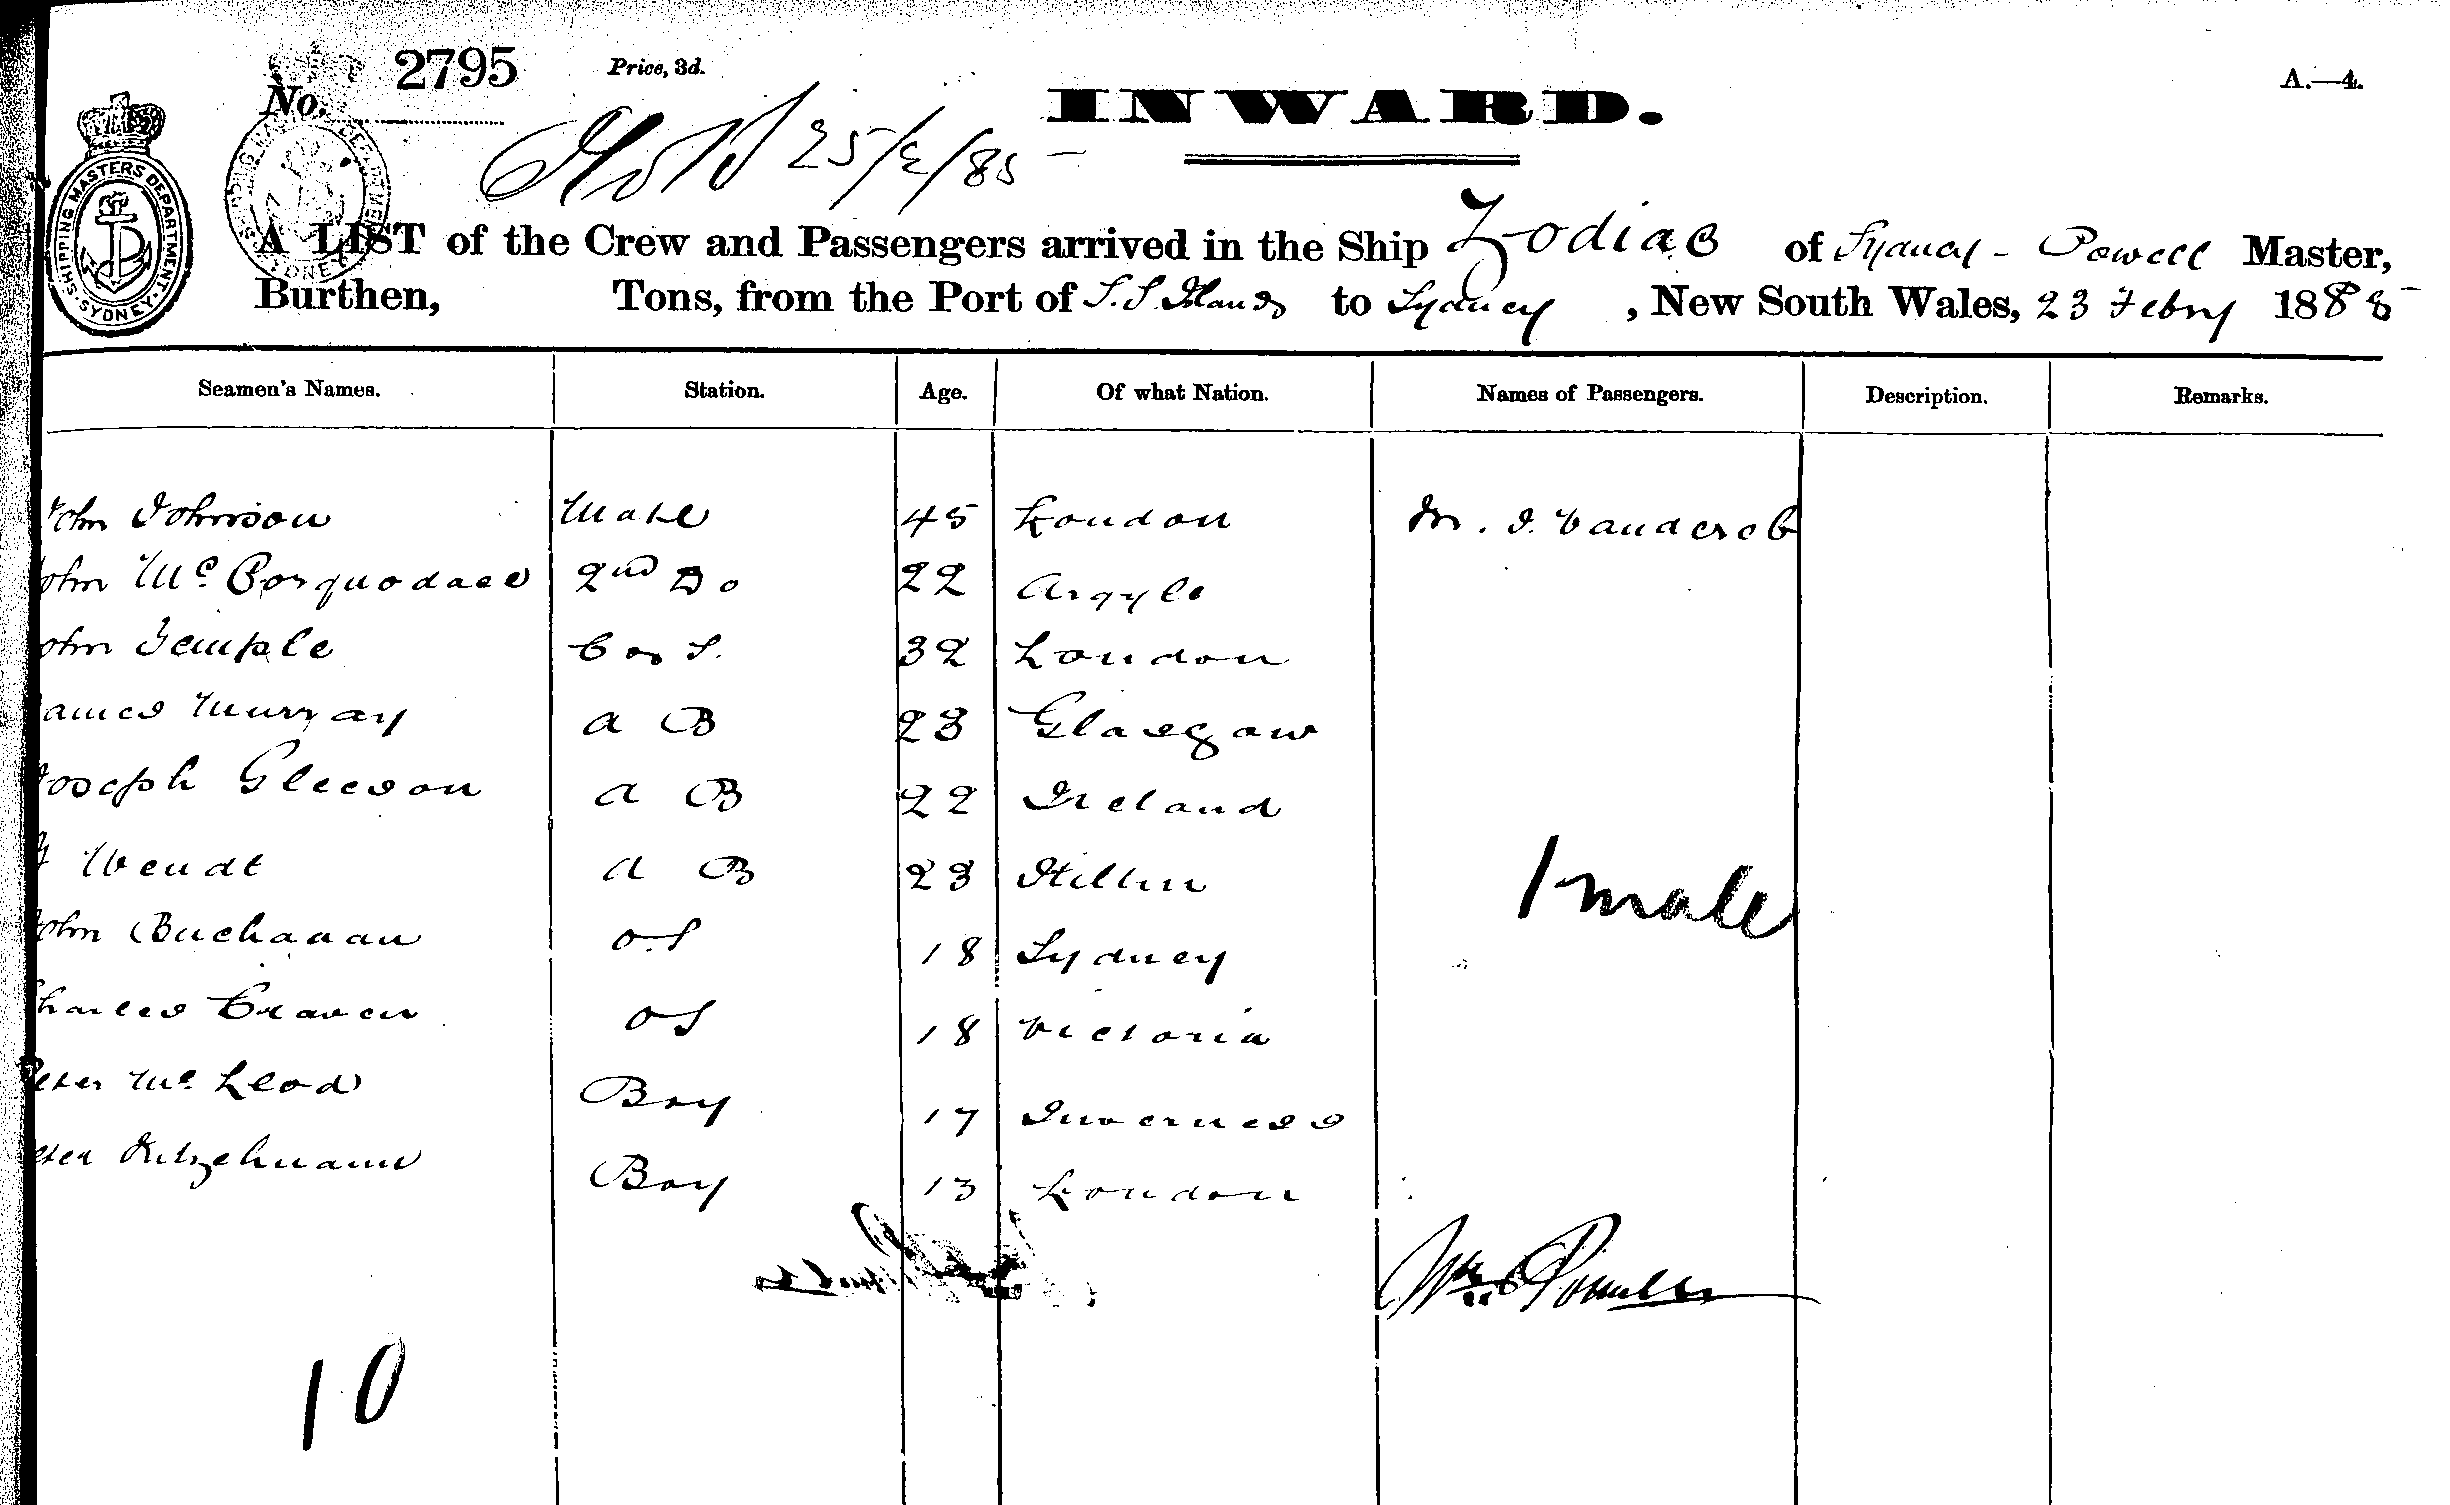 No. 2795 Price, 3d. A.—4.
INWARD.
25/2/85
SHIPPING MASTERS DEPARTMENT. SYDNEY.
A LIST of the Crew and Passengers arrived in the Ship Zodiac of Sydney - Powell Master,
Burthen, Tons, from the Port of S. S. Islands to Sydney, New South Wales, 23 Febry 1885
Seamen's Names. Station. Age. Of what Nation. Names of Passengers. Description. Remarks.
John Johnson Mate 45 London M. J. Vanderob
John Mc Corquodale 2nd Do 22 Argyle
John Temple C & S. 32 London
James Murray A B 23 Glasgow
Joseph Gleeson A B 22 Ireland
Wendt A B 23 Stettin
John Buchanan O.S 18 Sydney
Charles Craven O S 18 Victoria
Peter Mc Leod Boy 17 Inverness
Peter Kitzelmann Boy 13 London
1 male
Wm Powell
10